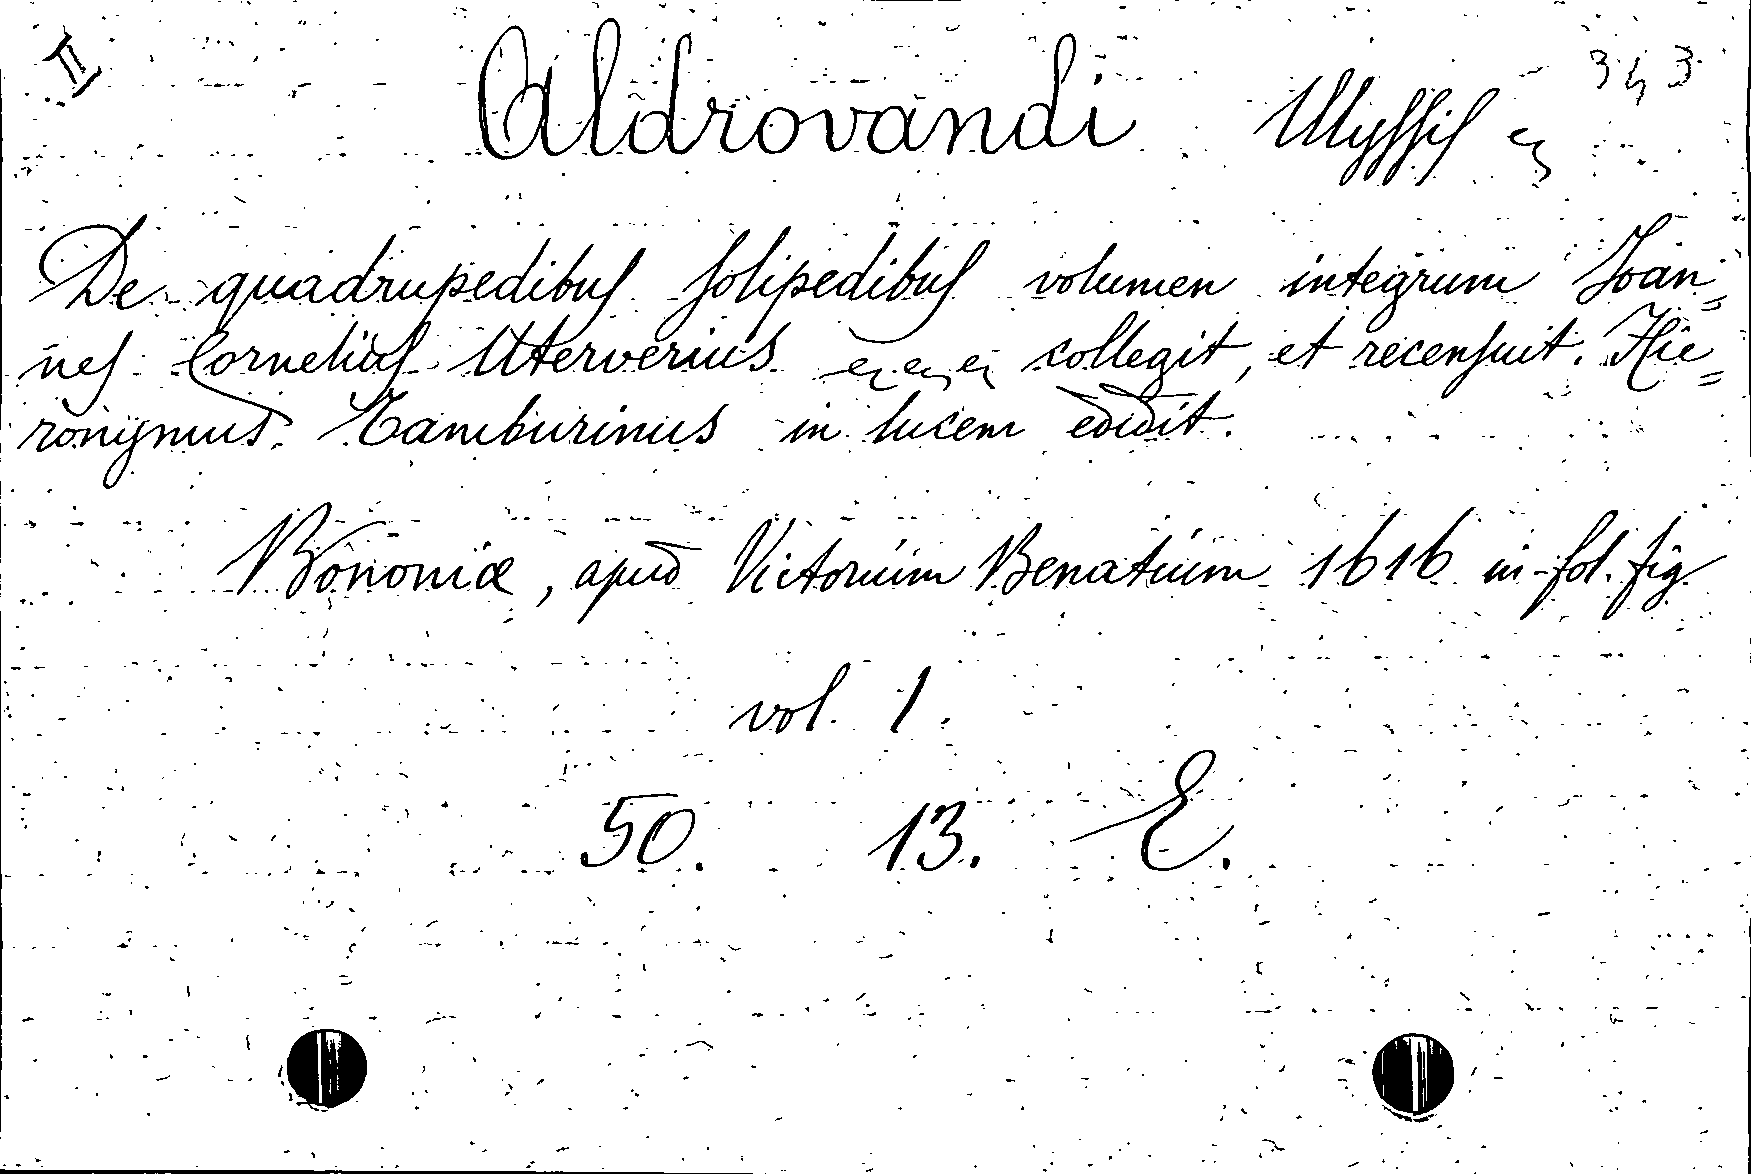 II
343
Aldrovandi Ulyssis
De quadrupedibus solipedibus volumen integrum Joan=
nes Cornelius Uterverius collegit, et recensuit. Hie=
ronymus Tamburinus in lucem edidit.
Bononiæ, apud Victorium Benatium 1616 in-fol. fig.
vol. 1.
50. 13. E.